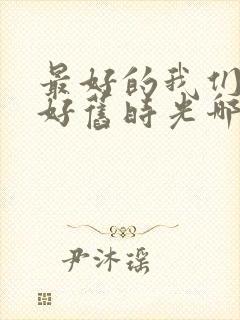 最好的我们
好舊时光哪
尹沐瑶